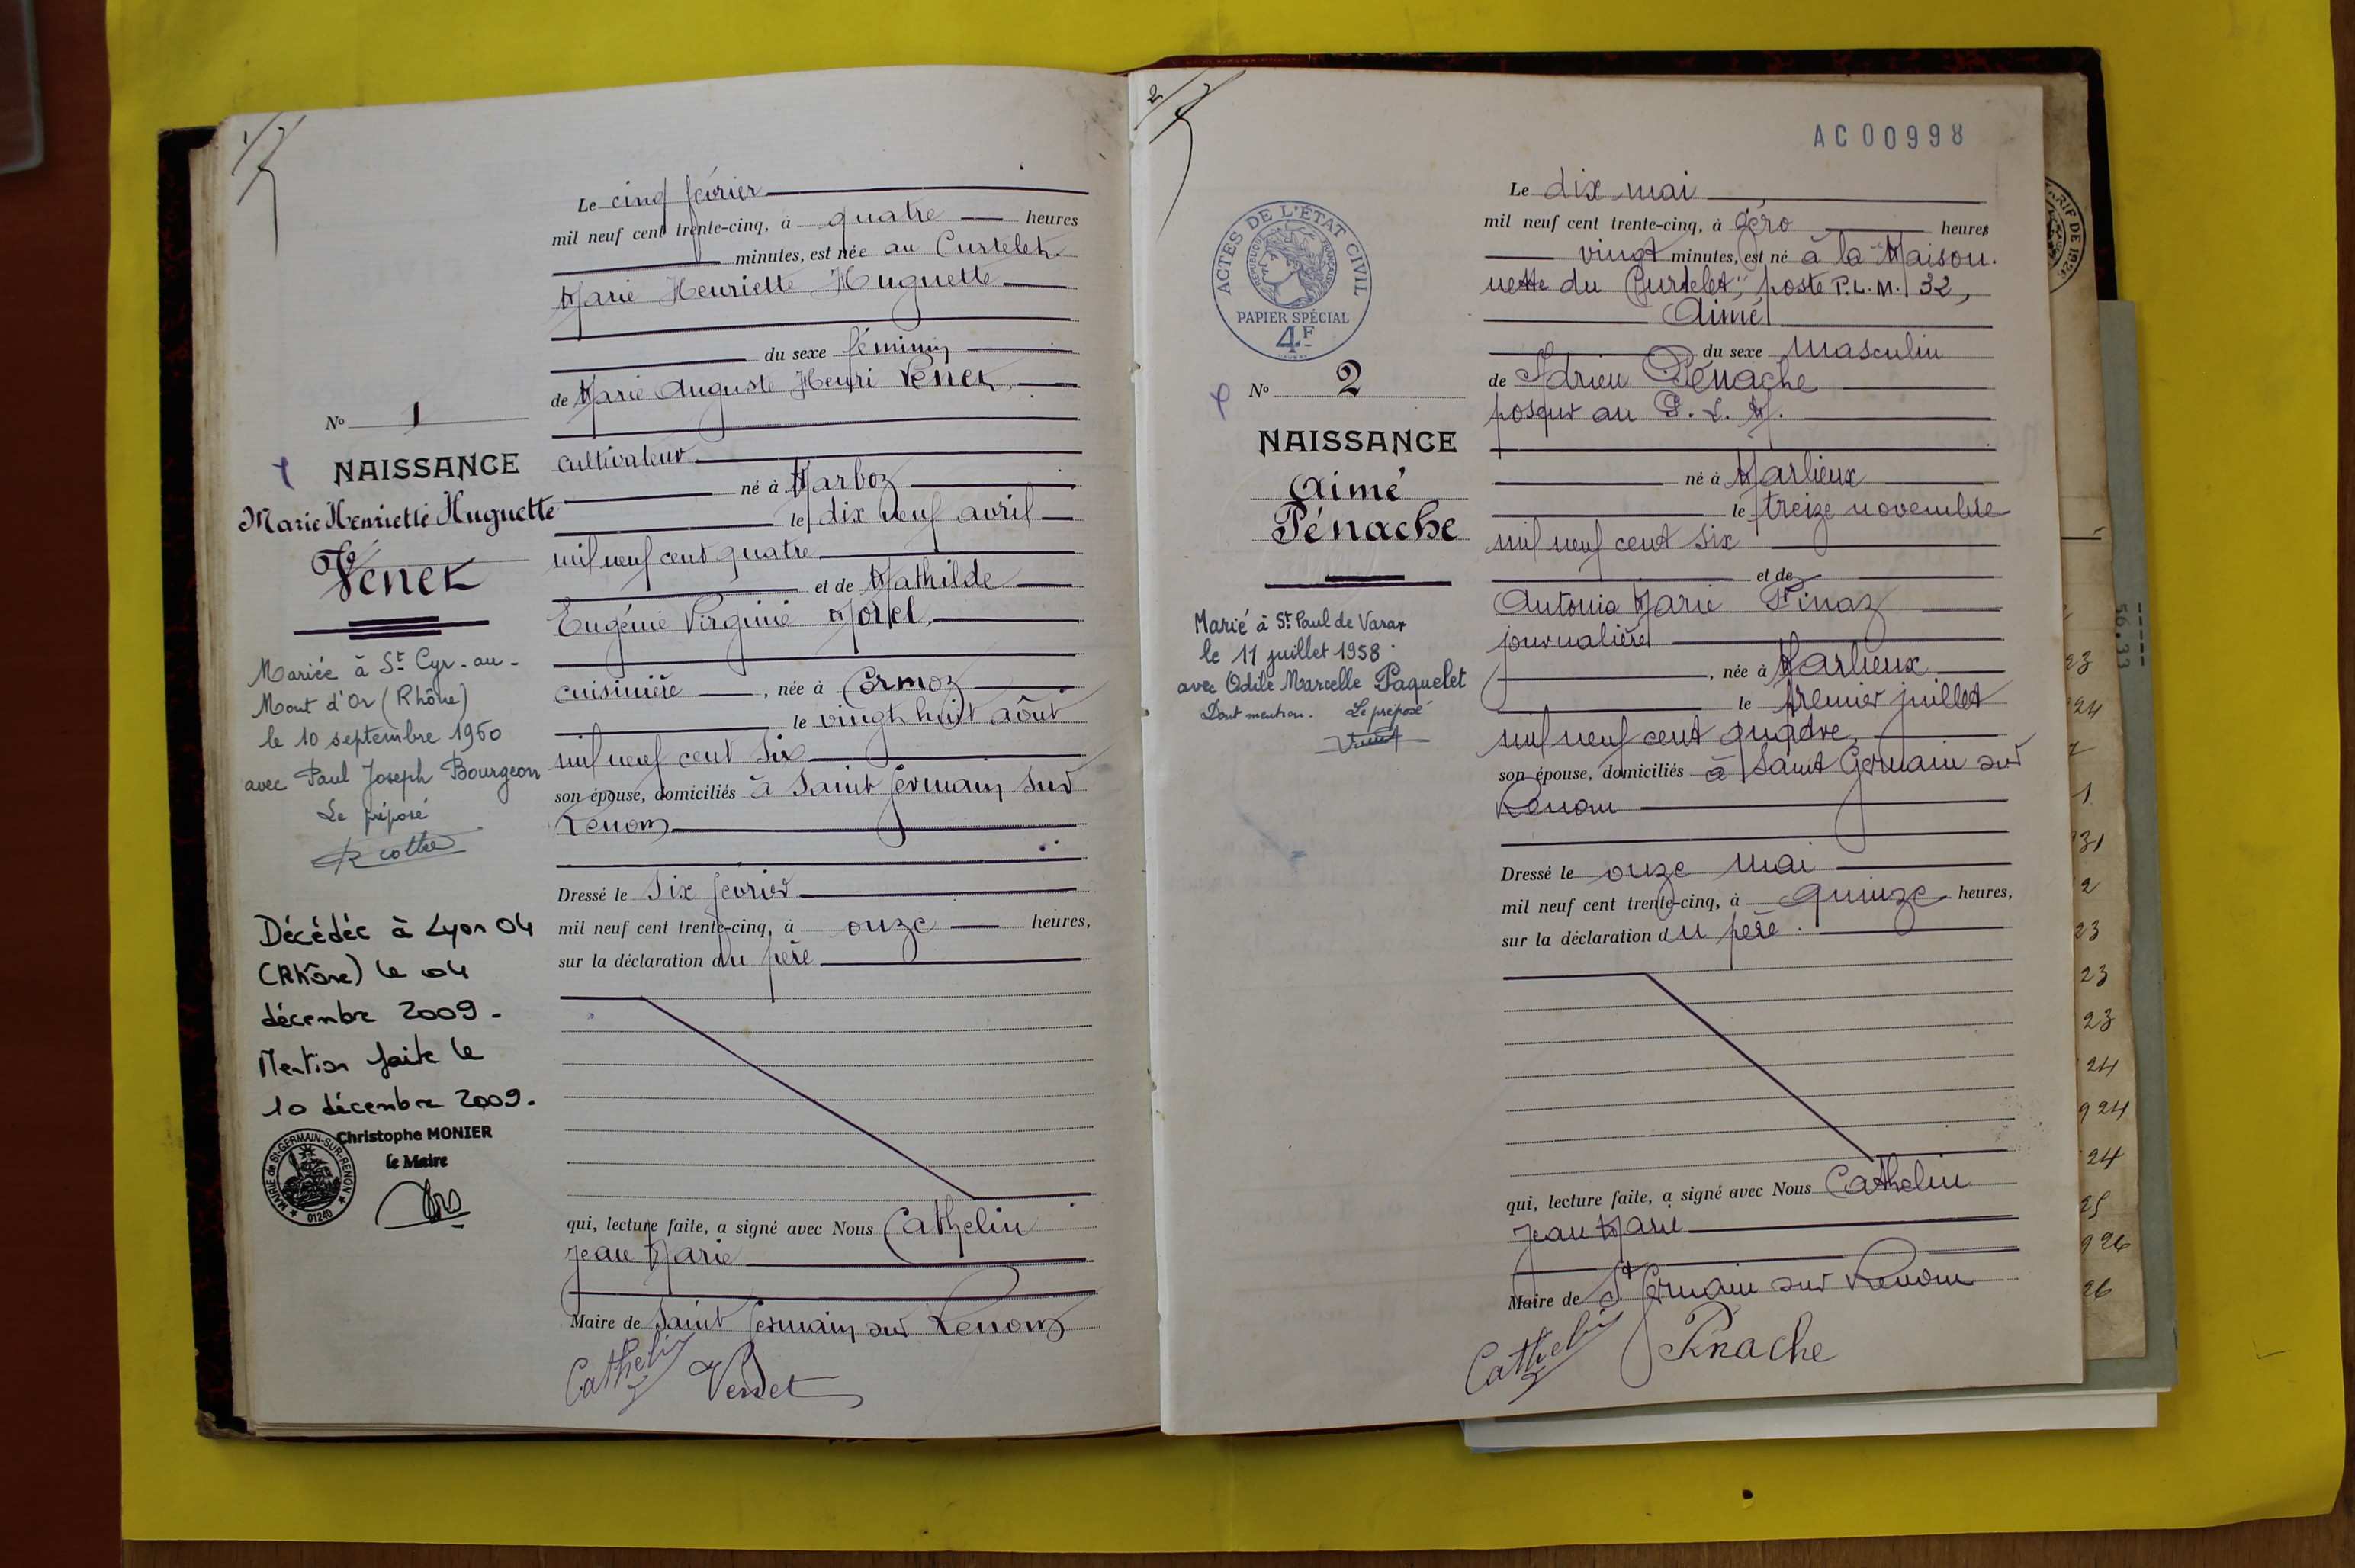 1/
Le cinq février
mil neuf cent trente-cinq, à quatre heures
minutes, est née au Curtelet
Marie Henriette Huguette
du sexe féminin
de Marie Auguste Henri Venet,
cultivateur
né à Marboz
le dix neuf avril
mil neuf cent quatre
et de Mathilde
Eugénie Virginie Morel,
cuisinière, née à Cormoz
le vingt huit août
mil neuf cent six
son épouse, domiciliés à Saint Germain sur
Renom
Dressé le six février
mil neuf cent trente-cinq, à onze heures,
sur la déclaration du père
qui, lecture faite, a signé avec Nous Cathelin
Jean Marie
Maire de Saint Germain sur Renom
Cathelin Venet
No 1
NAISSANCE
Marie Henriette Huguette
Venet
Mariée à St Cyr-au-
Mont d'Or (Rhône)
le 10 septembre 1960
avec Paul Joseph Bourgeon
Le préposé
Décédée à Lyon 04
(Rhône) le 04
décembre 2009.
Mention faite le
10 décembre 2009.
Christophe MONIER
le Maire
MAIRIE de St-GERMAIN-SUR-RENON
01240
2/
AC00998
Le dix mai
mil neuf cent trente-cinq, à zéro heures
vingt minutes, est né à la "Maison-
nette du Curtelet", poste P.L.M. 32,
Aimé
du sexe masculin
de Adrien Pénache
poseur au P.L.M.
né à Marlieux
le treize novembre
mil neuf cent six
et de
Antonia Marie Pinaz
journalière
, née à Marlieux
le premier juillet
mil neuf cent quatre,
son épouse, domiciliés à Saint Germain sur
Renom
Dressé le onze mai
mil neuf cent trente-cinq, à quinze heures,
sur la déclaration du père.
qui, lecture faite, a signé avec Nous Cathelin
Jean Marie
Maire de St Germain sur Renom
Cathelin Pénache
ACTES DE L'ÉTAT CIVIL
RÉPUBLIQUE FRANÇAISE
PAPIER SPÉCIAL
4F
No 2
NAISSANCE
Aimé
Pénache
Marié à St Paul de Varax
le 11 juillet 1958
avec Odile Marcelle Paquelet
Dont mention. Le préposé
23
24
2
1
31
2
23
23
23
24
924
24
25
926
26